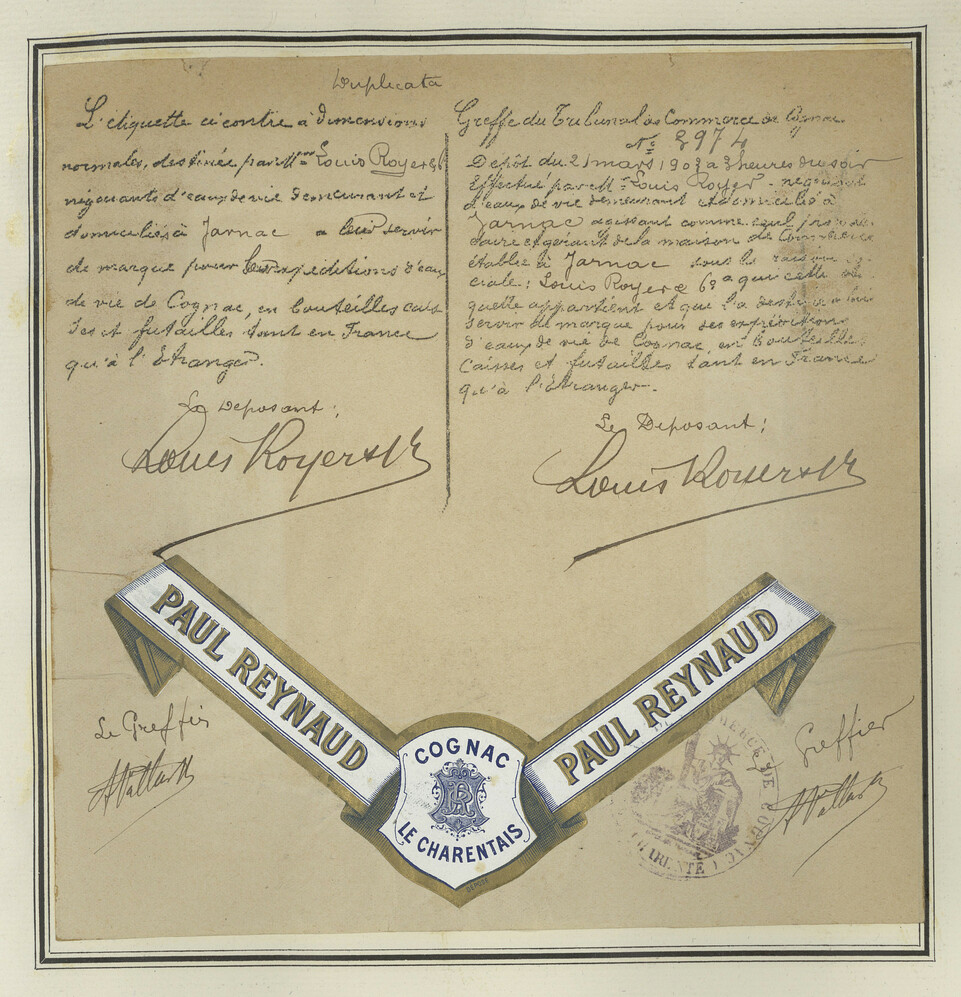 Duplicata
L'étiquette ci contre à dimensions
normales, destinée par Mr Louis Royer & Co
négociants d'eaux de vie demeurant et
domiciliés à Jarnac a leur servir
de marque pour leurs expéditions d'eaux
de vie de Cognac, en bouteilles cais
ses et futailles tant en France
qu'à l'Etranger.
Le Deposant:
Louis Royer & Co
Greffe du Tribunal de Commerce de Cognac
No 3974
Depôt du 21 mars 1903 à 3 heures du soir
Effectué par Mr Louis Royer négociant
d'eaux de vie demeurant et domicilié à
Jarnac agissant comme
taire et gérant de la maison de Commerce
établie à Jarnac sous la raison so
ciale: Louis Royer & Co à qui cette éti
quette appartient et que la destine à lui
servir de marque pour ses expéditions
d'eaux de vie de Cognac en bouteilles
caisses et futailles tant en France
qu'à l'étranger.
Le Deposant:
Louis Royer & Co
PAUL REYNAUD
PAUL REYNAUD
COGNAC
LE CHARENTAIS
DÉPOSÉ
Le Greffier
Greffier
COMMERCE DE COGNAC
CHARENTE